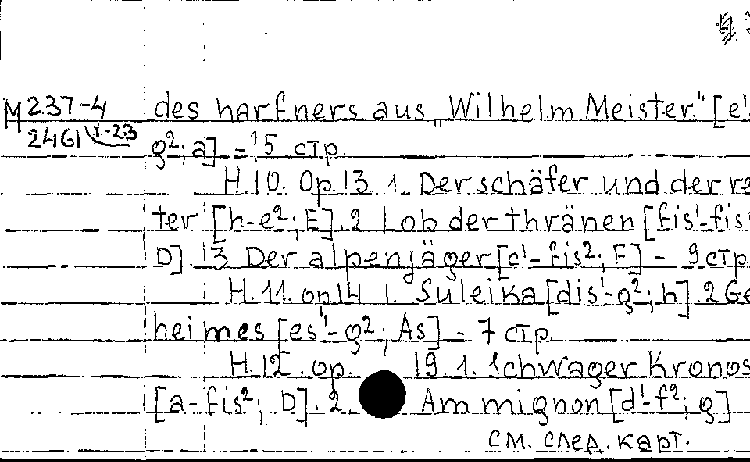 M 237-4
2461 1-23
des harfners aus „Wilhelm Meister" [e'
g²; a] - 15 стр
H.10. Op 13 1. Der schäfer und der re
ter [h-e²; E]. 2 Lob der thränen [fis'-fis
D]. 3 Der alpenjäger [c'-fis²; F] - 9 стр
H.11. op 14 1. Suleika [dis'-g²; h]. 2 Ge
heimes [es'-g²; As] - 7 стр.
H.12. op. 19 1. Schwager Kronos
[a-fis²; D]. 2. Am mignon [d'-f²; g]
См. след. карт.